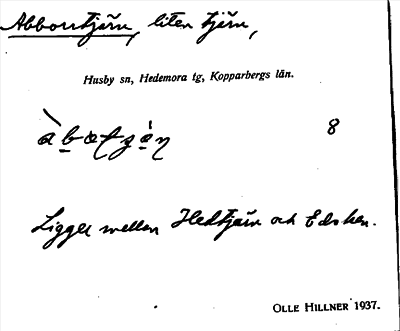 Abborrtjärn, liten tjärn,
Husby sn, Hedemora tg, Kopparbergs län.
8
Ligger mellan Hedtjärn och Edsken.
OLLE HILLNER 1937.